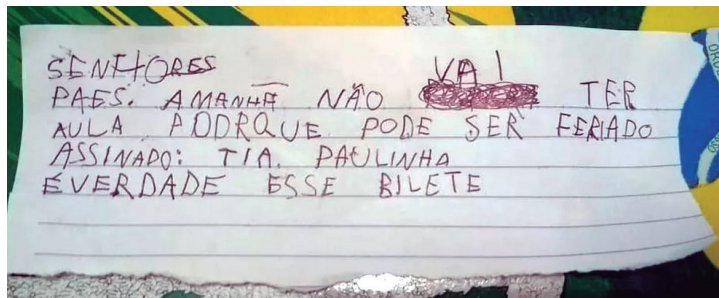 SENHORES VAI
PAES. AMANHÃ NÃO TER
AULA PODRQUE PODE SER FERIADO
ASSINADO: TIA. PAULINHA
É VERDADE ESSE BILETE